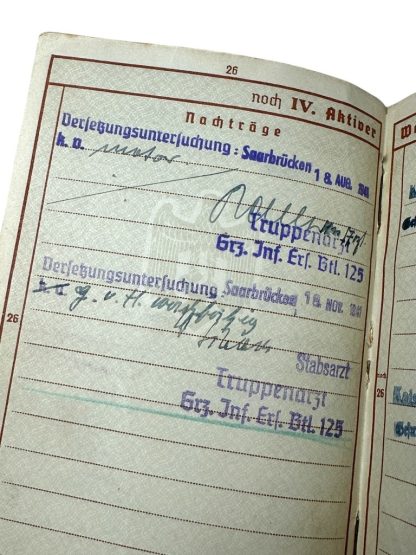 26
noch IV. Aktiver
Nachträge
Versetzungsuntersuchung: Saarbrücken 18. AUG. 1941
k. v. motor.
Truppenarzt
Grz. Inf. Ers. Btl. 125
Versetzungsuntersuchung Saarbrücken 18. NOV. 1941
g. v. H.
Stabsarzt
Truppenarzt
Grz. Inf. Ers. Btl. 125
26
26